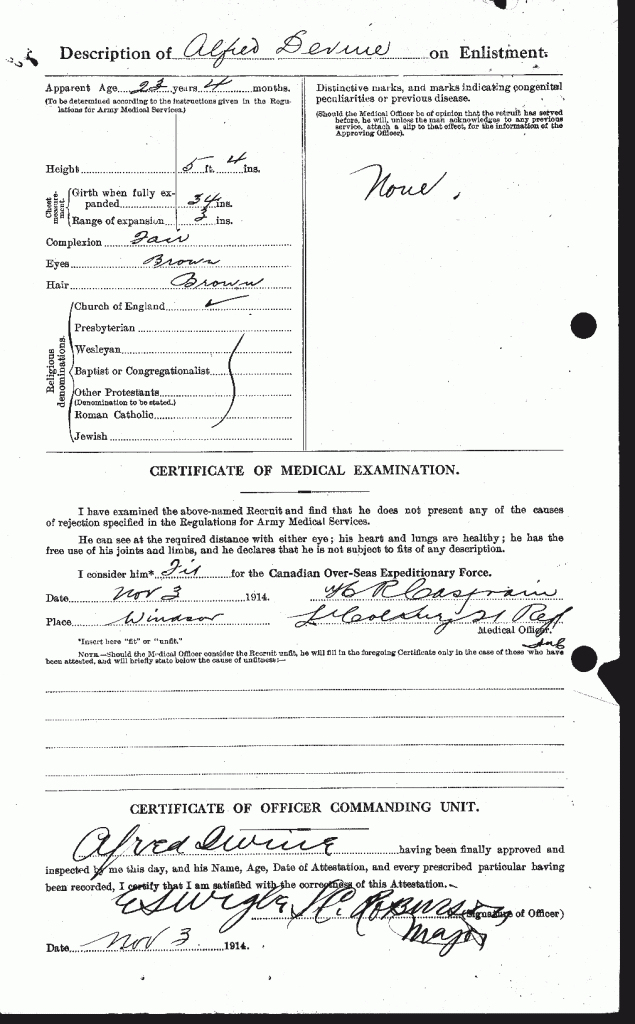 Description of Alfred Devine on Enlistment.
Apparent Age 23 years 4 months.
(To be determined according to the instructions given in the Regu-
lations for Army Medical Services.)
Height 5 ft. 4 ins.
Chest measure-ment.
Girth when fully ex-
panded 34 ins.
Range of expansion 3 ins.
Complexion Fair
Eyes Brown
Hair Brown
Religious denominations.
Church of England ✓
Presbyterian
Wesleyan
Baptist or Congregationalist
Other Protestants
(Denomination to be stated.)
Roman Catholic
Jewish
Distinctive marks, and marks indicating congenital
peculiarities or previous disease.
(Should the Medical Officer be of opinion that the recruit has served
before, he will, unless the man acknowledges to any previous
service, attach a slip to that effect, for the information of the
Approving Officer).
None.
CERTIFICATE OF MEDICAL EXAMINATION.
I have examined the above-named Recruit and find that he does not present any of the causes
of rejection specified in the Regulations for Army Medical Services.
He can see at the required distance with either eye; his heart and lungs are healthy; he has the
free use of his joints and limbs, and he declares that he is not subject to fits of any description.
I consider him* Fit for the Canadian Over-Seas Expeditionary Force.
Date Nov 3 1914. H R Casgrain
Place Windsor
Medical Officer.
*Insert here "fit" or "unfit."
NOTE.—Should the Medical Officer consider the Recruit unfit, he will fill in the foregoing Certificate only in the case of those who have
been attested, and will briefly state below the cause of unfitness:—
CERTIFICATE OF OFFICER COMMANDING UNIT.
Alfred Devine having been finally approved and
inspected by me this day, and his Name, Age, Date of Attestation, and every prescribed particular having
been recorded, I certify that I am satisfied with the correctness of this Attestation.
E S Wigle
(Signature of Officer)
Major
Date Nov 3 1914.